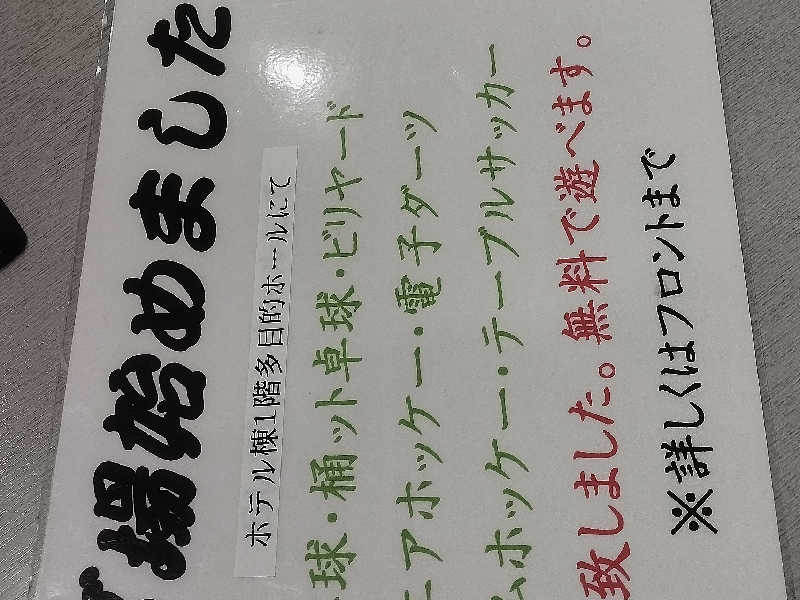 場始めました
ホテル棟1階多目的ホールにて
球・桶ット卓球・ビリヤード
エアホッケー・電子ダーツ
ムホッケー・テーブルサッカー
致しました。無料で遊べます。
※詳しくはフロントまで